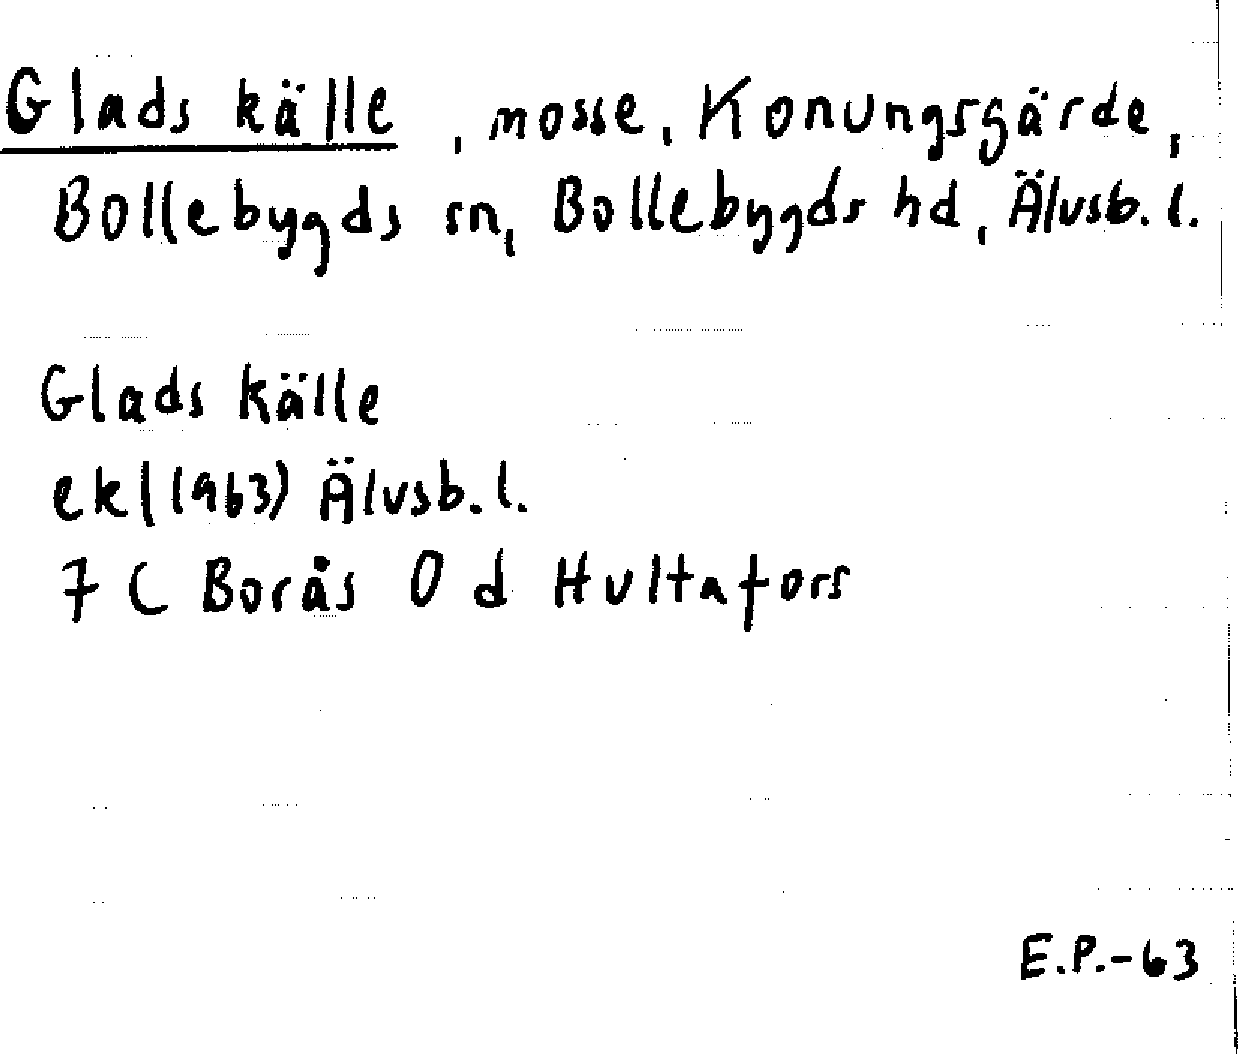 Glads källe, mosse, Konungsgärde,
Bollebygds sn, Bollebygds hd, Älvsb. l.
Glads källe
ekl (1963) Älvsb. l.
7 C Borås 0 d Hultafors
E.P.-63